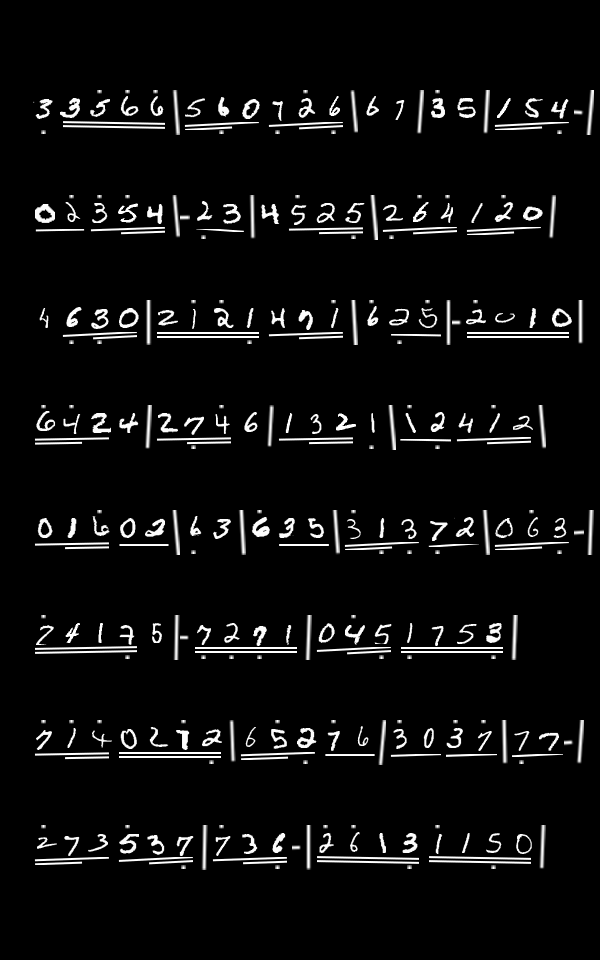 3 3 5 6 6 | 5 6 0 7 2 6 | 6 7 | 3 5 | 1 5 4 - |
0 2 3 5 4 | - 2 3 | 4 5 2 5 | 2 6 4 1 2 0 |
4 6 3 0 | 2 1 2 1 4 7 1 | 6 2 5 | - 2 0 1 0 |
6 4 2 4 | 2 7 4 6 | 1 3 2 1 | 1 2 4 1 2 |
0 1 6 0 2 | 6 3 | 6 3 5 | 3 1 3 7 2 | 0 6 3 - |
2 4 1 7 5 | - 7 2 7 1 | 0 4 5 1 7 5 3 |
7 1 4 0 2 1 2 | 6 5 2 7 6 | 3 0 3 7 | 7 7 - |
2 7 3 5 3 7 | 7 3 6 - | 2 6 1 3 1 1 5 0 |